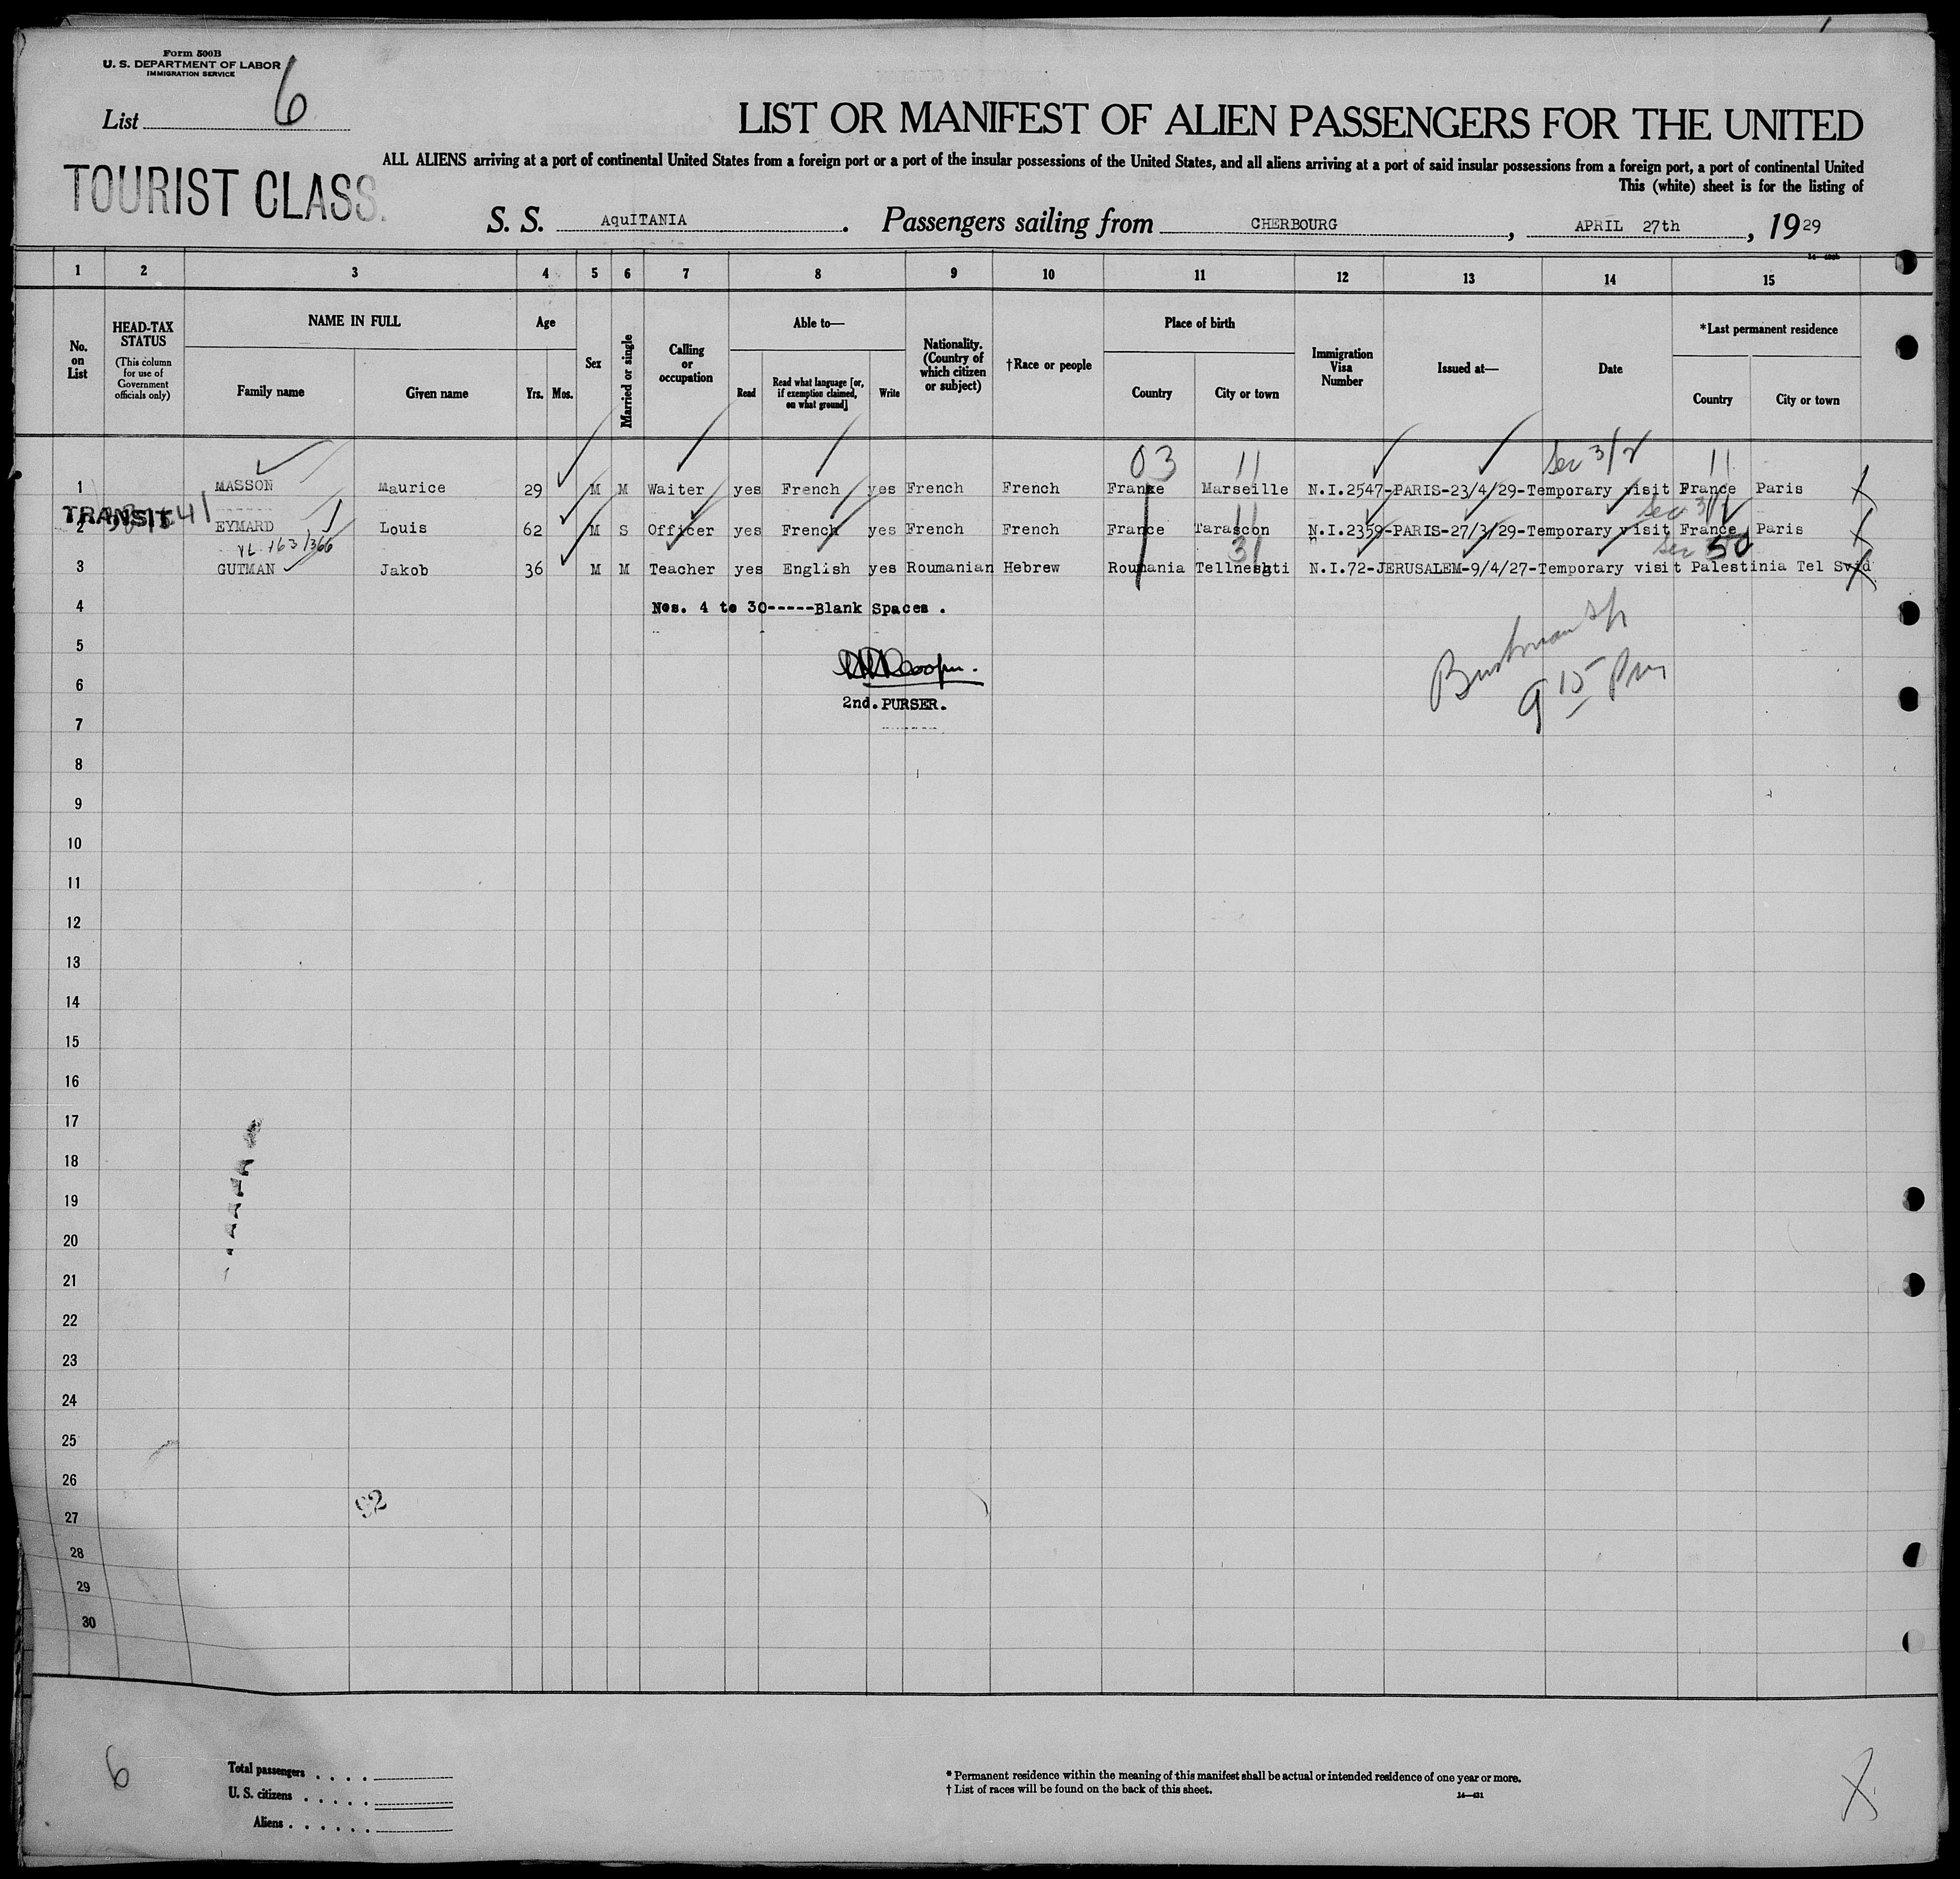 Form 500B
U. S. DEPARTMENT OF LABOR
IMMIGRATION SERVICE
List 6
LIST OR MANIFEST OF ALIEN PASSENGERS FOR THE UNITED
ALL ALIENS arriving at a port of continental United States from a foreign port or a port of the insular possessions of the United States, and all aliens arriving at a port of said insular possessions from a foreign port, a port of continental United
This (white) sheet is for the listing of
TOURIST CLASS.
S. S. AquITANIA. Passengers sailing from CHERBOURG, APRIL 27th, 1929
1 2 3 4 5 6 7 8 9 10 11 12 13 14 15
No. on List
HEAD-TAX STATUS
(This column for use of Government officials only)
NAME IN FULL
Family name
Given name
Age
Yrs. Mos.
Sex
Married or single
Calling or occupation
Able to—
Read
Read what language [or, if exemption claimed, on what ground]
Write
Nationality. (Country of which citizen or subject)
†Race or people
Place of birth
Country
City or town
Immigration Visa Number
Issued at—
Date
*Last permanent residence
Country
City or town
03 11 Sec 3/2 11
1 MASSON Maurice 29 M M Waiter yes French yes French French France Marseille N.I.2547-PARIS-23/4/29-Temporary visit France Paris
TRANSIT
2 EYMARD Louis 62 M S Officer yes French yes French French France Tarascon N.I.2359-PARIS-27/3/29-Temporary visit France Paris
31 Sec 50
3 GUTMAN Jakob 36 M M Teacher yes English yes Roumanian Hebrew Roumania N.I.72-JERUSALEM-9/4/27-Temporary visit Palestinia Tel
4 Nos. 4 to 30-----Blank Spaces .
5
6
2nd. PURSER.
9 15 Pm
7
8
9
10
11
12
13
14
15
16
17
18
19
20
21
22
23
24
25
26
92
27
28
29
30
6
Total passengers . . . .
U. S. citizens . . . . .
Aliens . . . . . .
* Permanent residence within the meaning of this manifest shall be actual or intended residence of one year or more.
† List of races will be found on the back of this sheet.
14—431